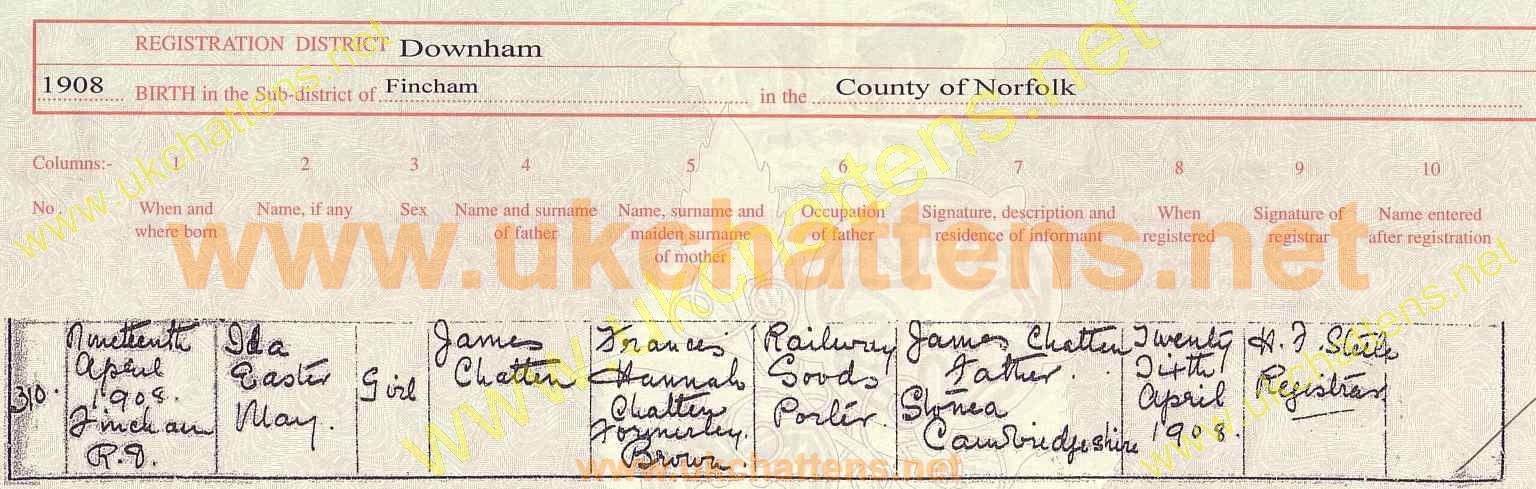 REGISTRATION DISTRICT Downham
1908 BIRTH in the Sub-district of Fincham in the County of Norfolk
Columns:- 1 2 3 4 5 6 7 8 9 10
No. When and where born Name, if any Sex Name and surname of father Name, surname and maiden surname of mother Occupation of father Signature, description and residence of informant When registered Signature of registrar Name entered after registration
www.ukchattens.net
310. Nineteenth April 1908. Fincham R.D. Ida Easter May. Girl James Chatten Frances Hannah Chatten formerley Brown. Railway Goods Porter. James Chatten Father. Stonea Cambridgeshire Twenty Sixth April 1908. H. F. Steele Registrar
www.ukchattens.net
www.ukchattens.net
www.ukchattens.net
www.ukchattens.net
www.ukchattens.net
www.ukchattens.net